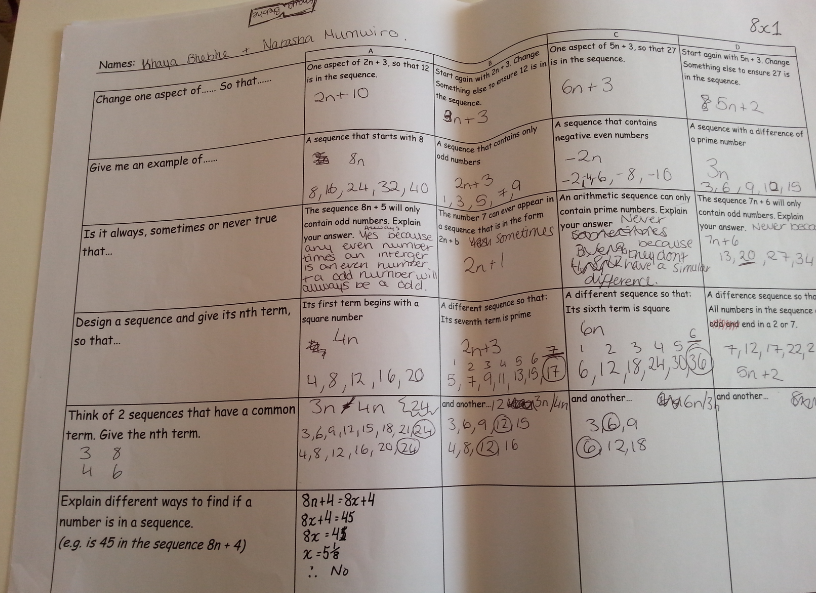 8x1
Names: Khaya Bhebhe + Natasha Mumwiro.
A
B
C
D
Change one aspect of...... So that......
One aspect of 2n + 3, so that 12
is in the sequence.
2n+10
Start again with 2n + 3. Change
Something else to ensure 12 is in
the sequence.
3n+3
One aspect of 5n + 3, so that 27
is in the sequence.
6n+3
Start again with 5n + 3. Change
Something else to ensure 27 is
in the sequence.
5n+2
Give me an example of......
A sequence that starts with 8
8n
8, 16, 24, 32, 40
A sequence that contains only
odd numbers
2n+3
1, 3, 5, 7, 9
A sequence that contains
negative even numbers
-2n
-2, -4, -6, -8, -10
A sequence with a difference of
a prime number
3n
3, 6, 9, 12, 15
Is it always, sometimes or never true
that...
The sequence 8n + 5 will only
contain odd numbers. Explain
your answer. Yes because
always
any even number
times an interger
is an even number
+ a odd number will
always be a odd.
The number 7 can ever appear in
a sequence that is in the form
2n + b sometimes
2n+1
An arithmetic sequence can only
contain prime numbers. Explain
your answer Never
Sometimes
because
they dont
have a similar
difference.
The sequence 7n + 6 will only
contain odd numbers. Explain
your answer. Never beca
7n+6
13, 20, 27, 34
Design a sequence and give its nth term,
so that...
Its first term begins with a
square number
4n
4, 8, 12, 16, 20
A different sequence so that:
Its seventh term is prime
2n+3
1 2 3 4 5 6 7
5, 7, 9, 11, 13, 15, 17
A different sequence so that:
Its sixth term is square
6n
1 2 3 4 5 6
6, 12, 18, 24, 30, 36
A difference sequence so tha
All numbers in the sequence
end in a 2 or 7.
7, 12, 17, 22, 2
5n+2
Think of 2 sequences that have a common
term. Give the nth term.
3 8
4 6
3n 4n 24
3, 6, 9, 12, 15, 18, 21, 24
4, 8, 12, 16, 20, 24
and another... 12 3n/4n
3, 6, 9, 12, 15
4, 8, 12, 16
and another... 6n/3n
3, 6, 9
6, 12, 18
and another...
Explain different ways to find if a
number is in a sequence.
(e.g. is 45 in the sequence 8n + 4)
8n+4 = 8x+4
8x+4 = 45
8x = 41
x = 5⅛
∴ No